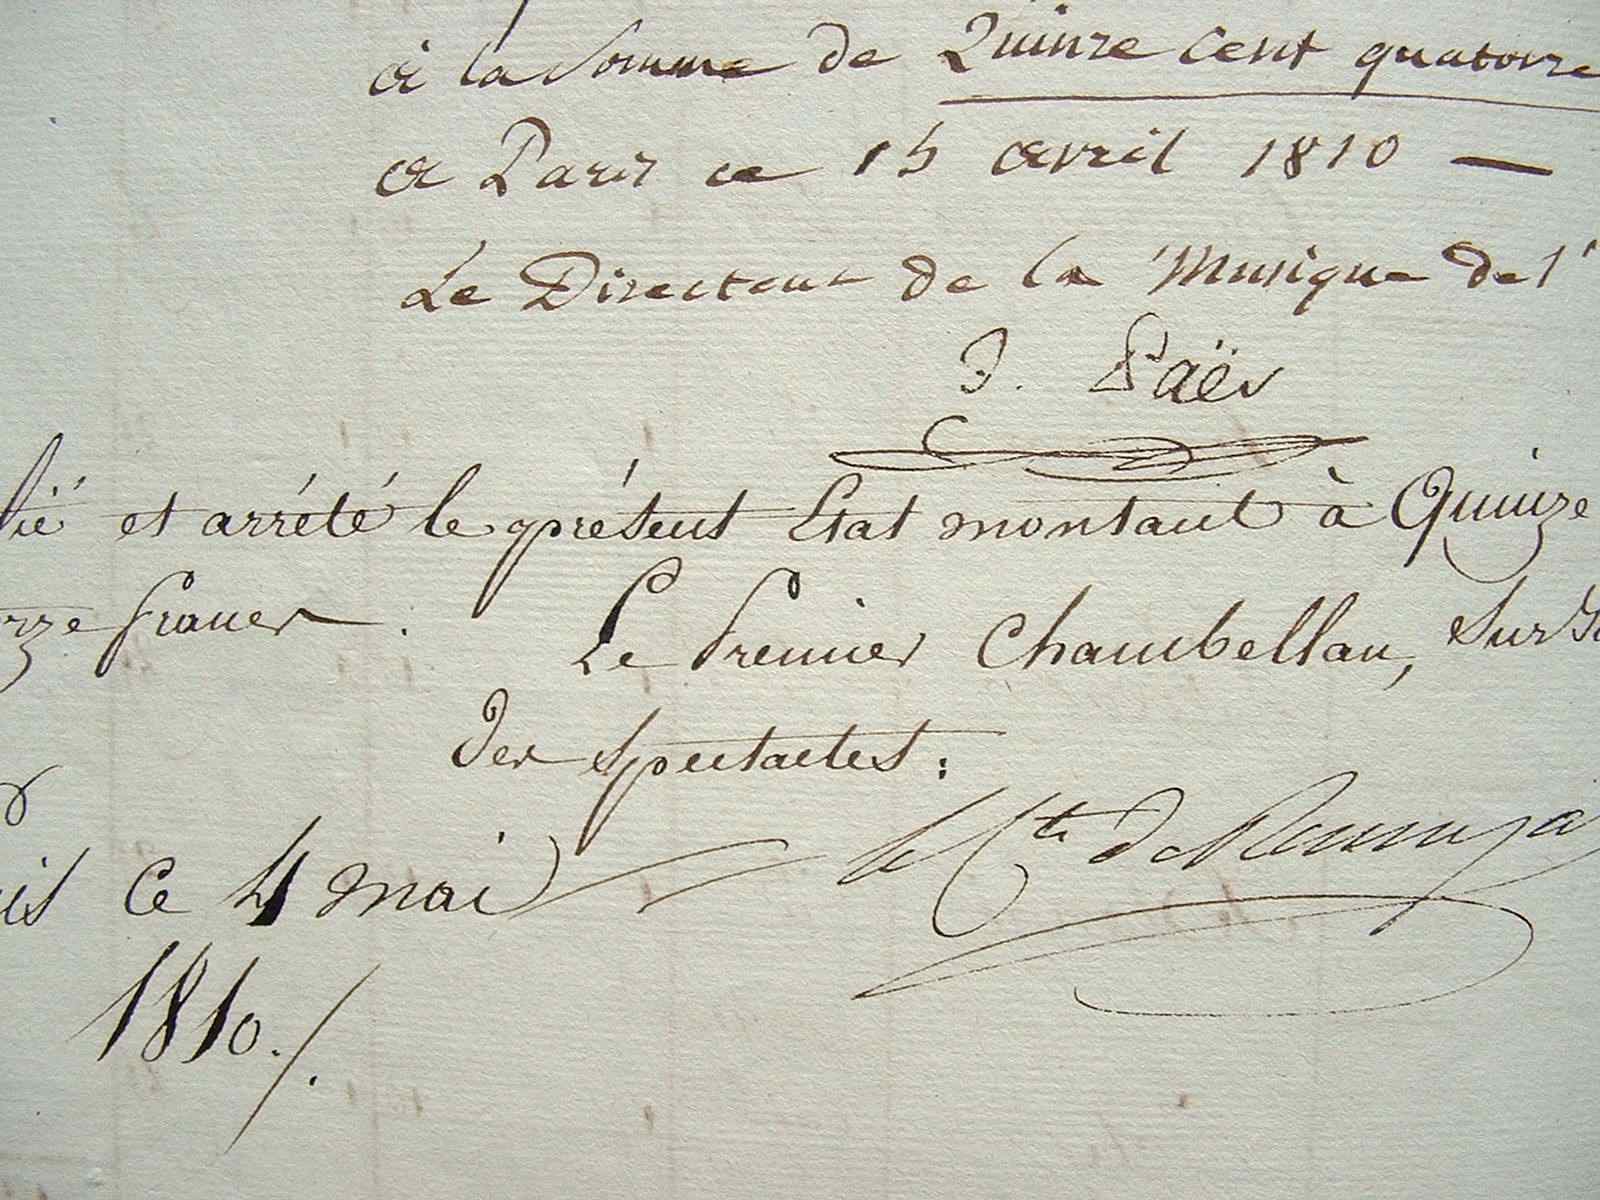 à la Somme de Quinze cent quatorze
à Paris ce 15 avril 1810 —
Le Directeur de la Musique de l'
F. Paër
fié et arrété le présent Etat montant à Quinze
orze francs. Le Premier Chambellan, Sur
des spectacles:
le Cte de Remusa
is Ce 4 mai
1810./.